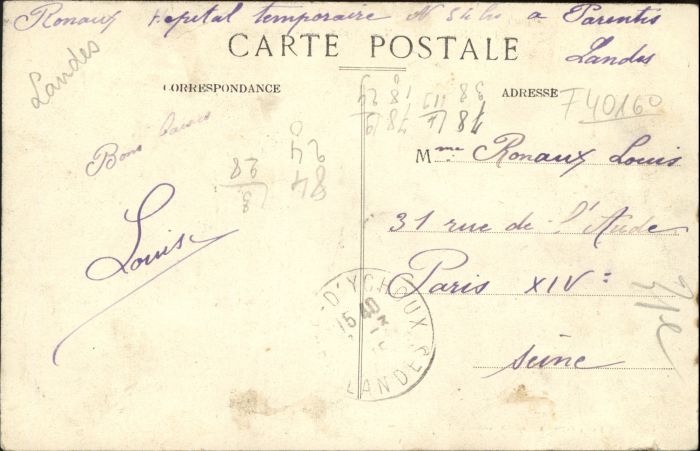 Ronaux Hopital temporaire N 54 bis a Parentis
Landes
CARTE POSTALE
Landes
CORRESPONDANCE
ADRESSE
F 40160
Bons baisers
Louis
Mme Ronaux Louis
31 rue de l'Aude
Paris XIVe
Seine
D'YCHOUX
15 40
LANDES
24
84
28
38
18 24
78